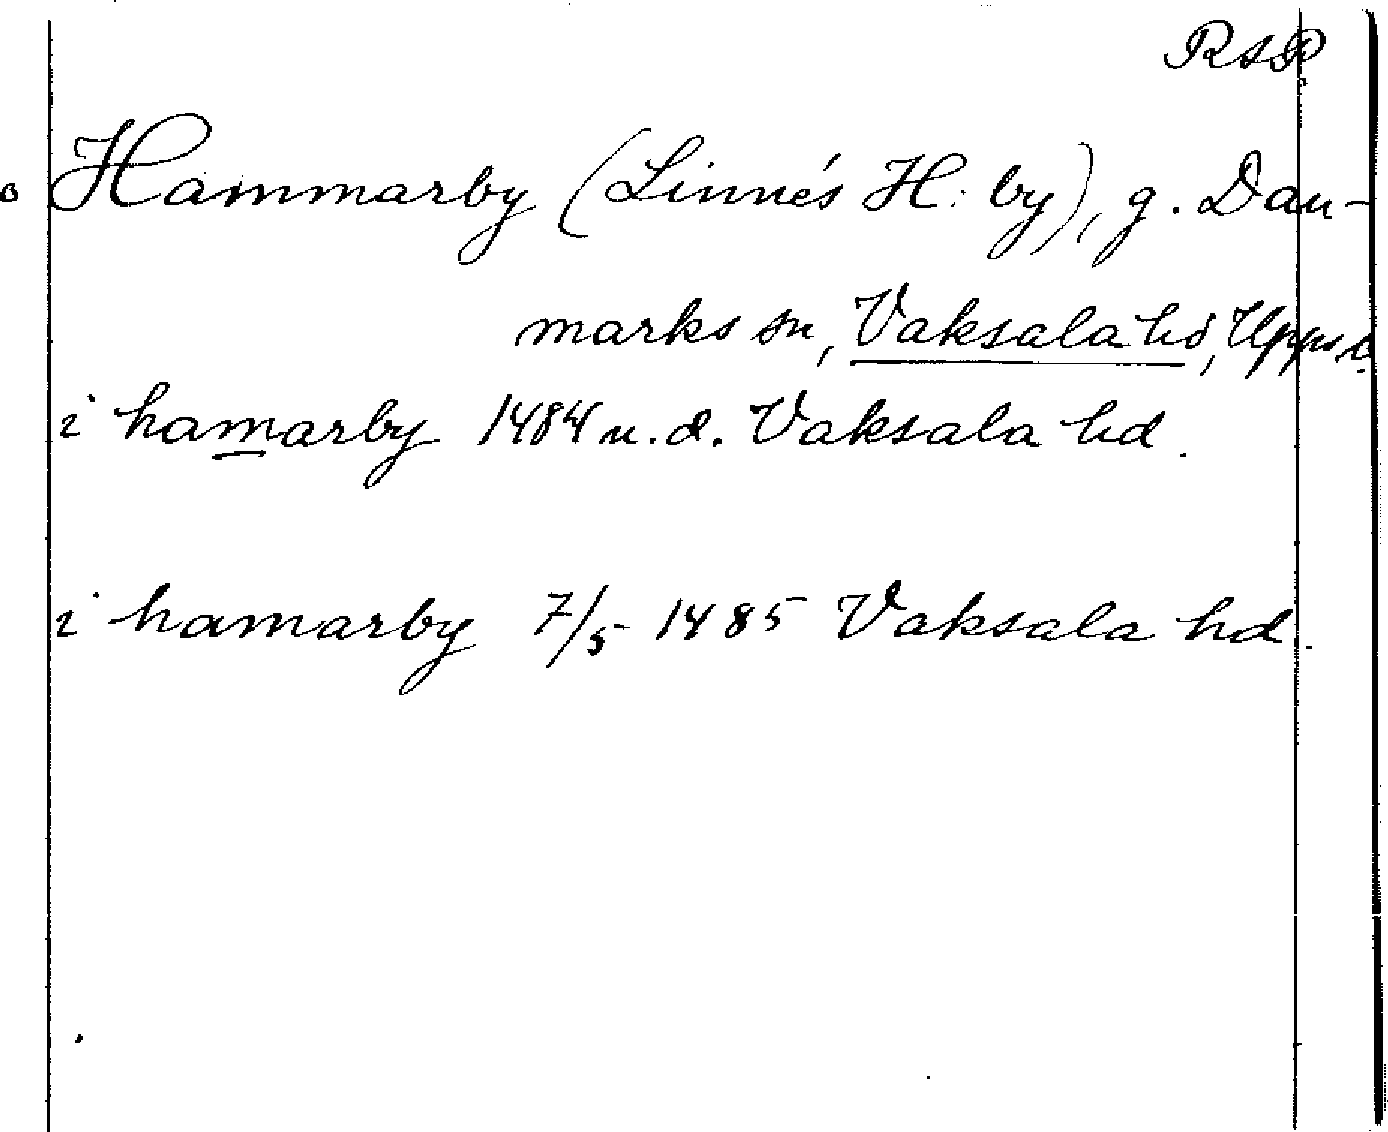 RSP.
o Hammarby (Linnés H:by), g. Dan-
marks sn, Vaksala hd, Upps l.
i hamarby 1484 u.d. Vaksala hd.
i hamarby 7/5 1485 Vaksala hd.